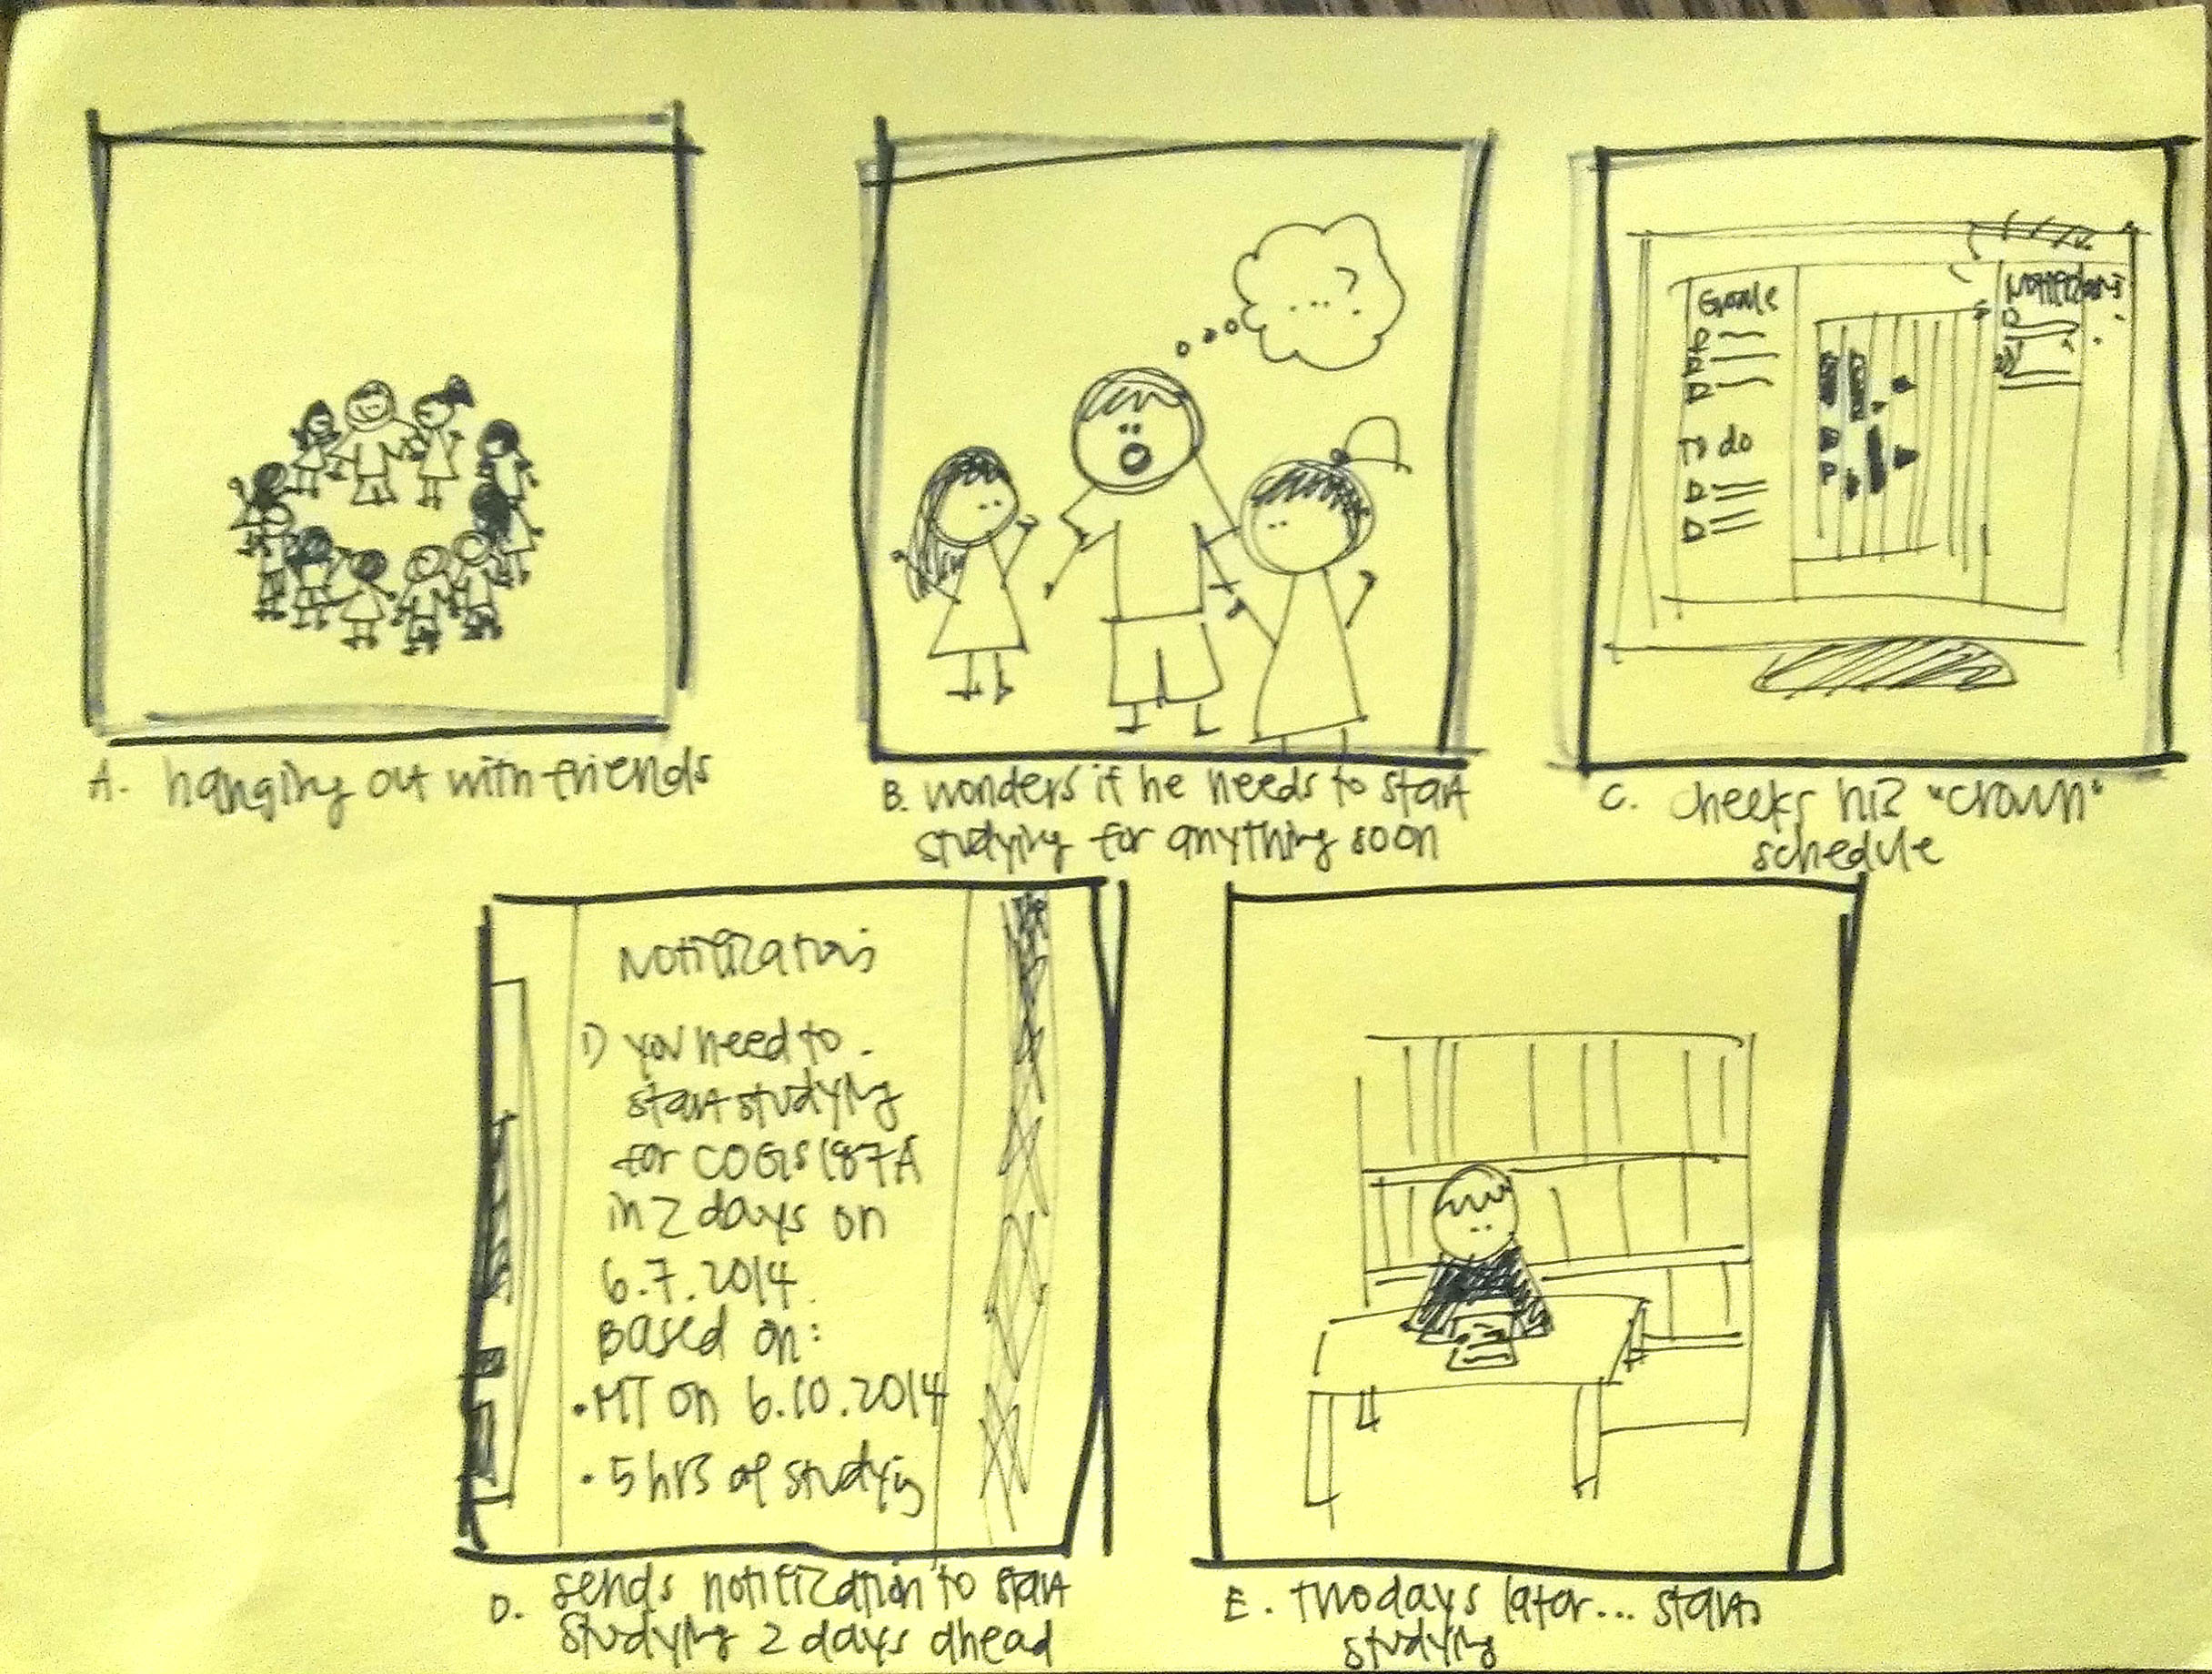 A. hanging out with friends
B. wonders if he needs to start
studying for anything soon
Goals
To do
Notifications
C. checks his "crown"
schedule
Notifications
1) you need to
start studying
for COGS187A
in 2 days on
6.7.2014.
Based on:
• MT on 6.10.2014
• 5 hrs of studying
D. sends notification to start
studying 2 days ahead
E. two days later... starts
studying